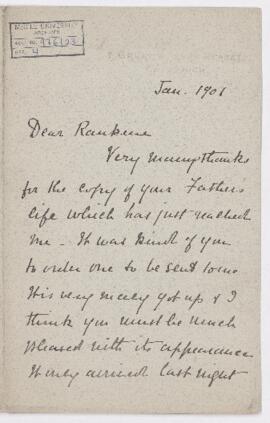 McGILL UNIVERSITY
ARCHIVES
ACC. NO.
REF.
Jan. 1901
Dear Rankine
Very many thanks
for the copy of your Father's
life which has just reached
me – It was kind of you
to order one to be sent to me
It is very nicely got up & I
think you must be much
pleased with its appearance
It only arrived last night